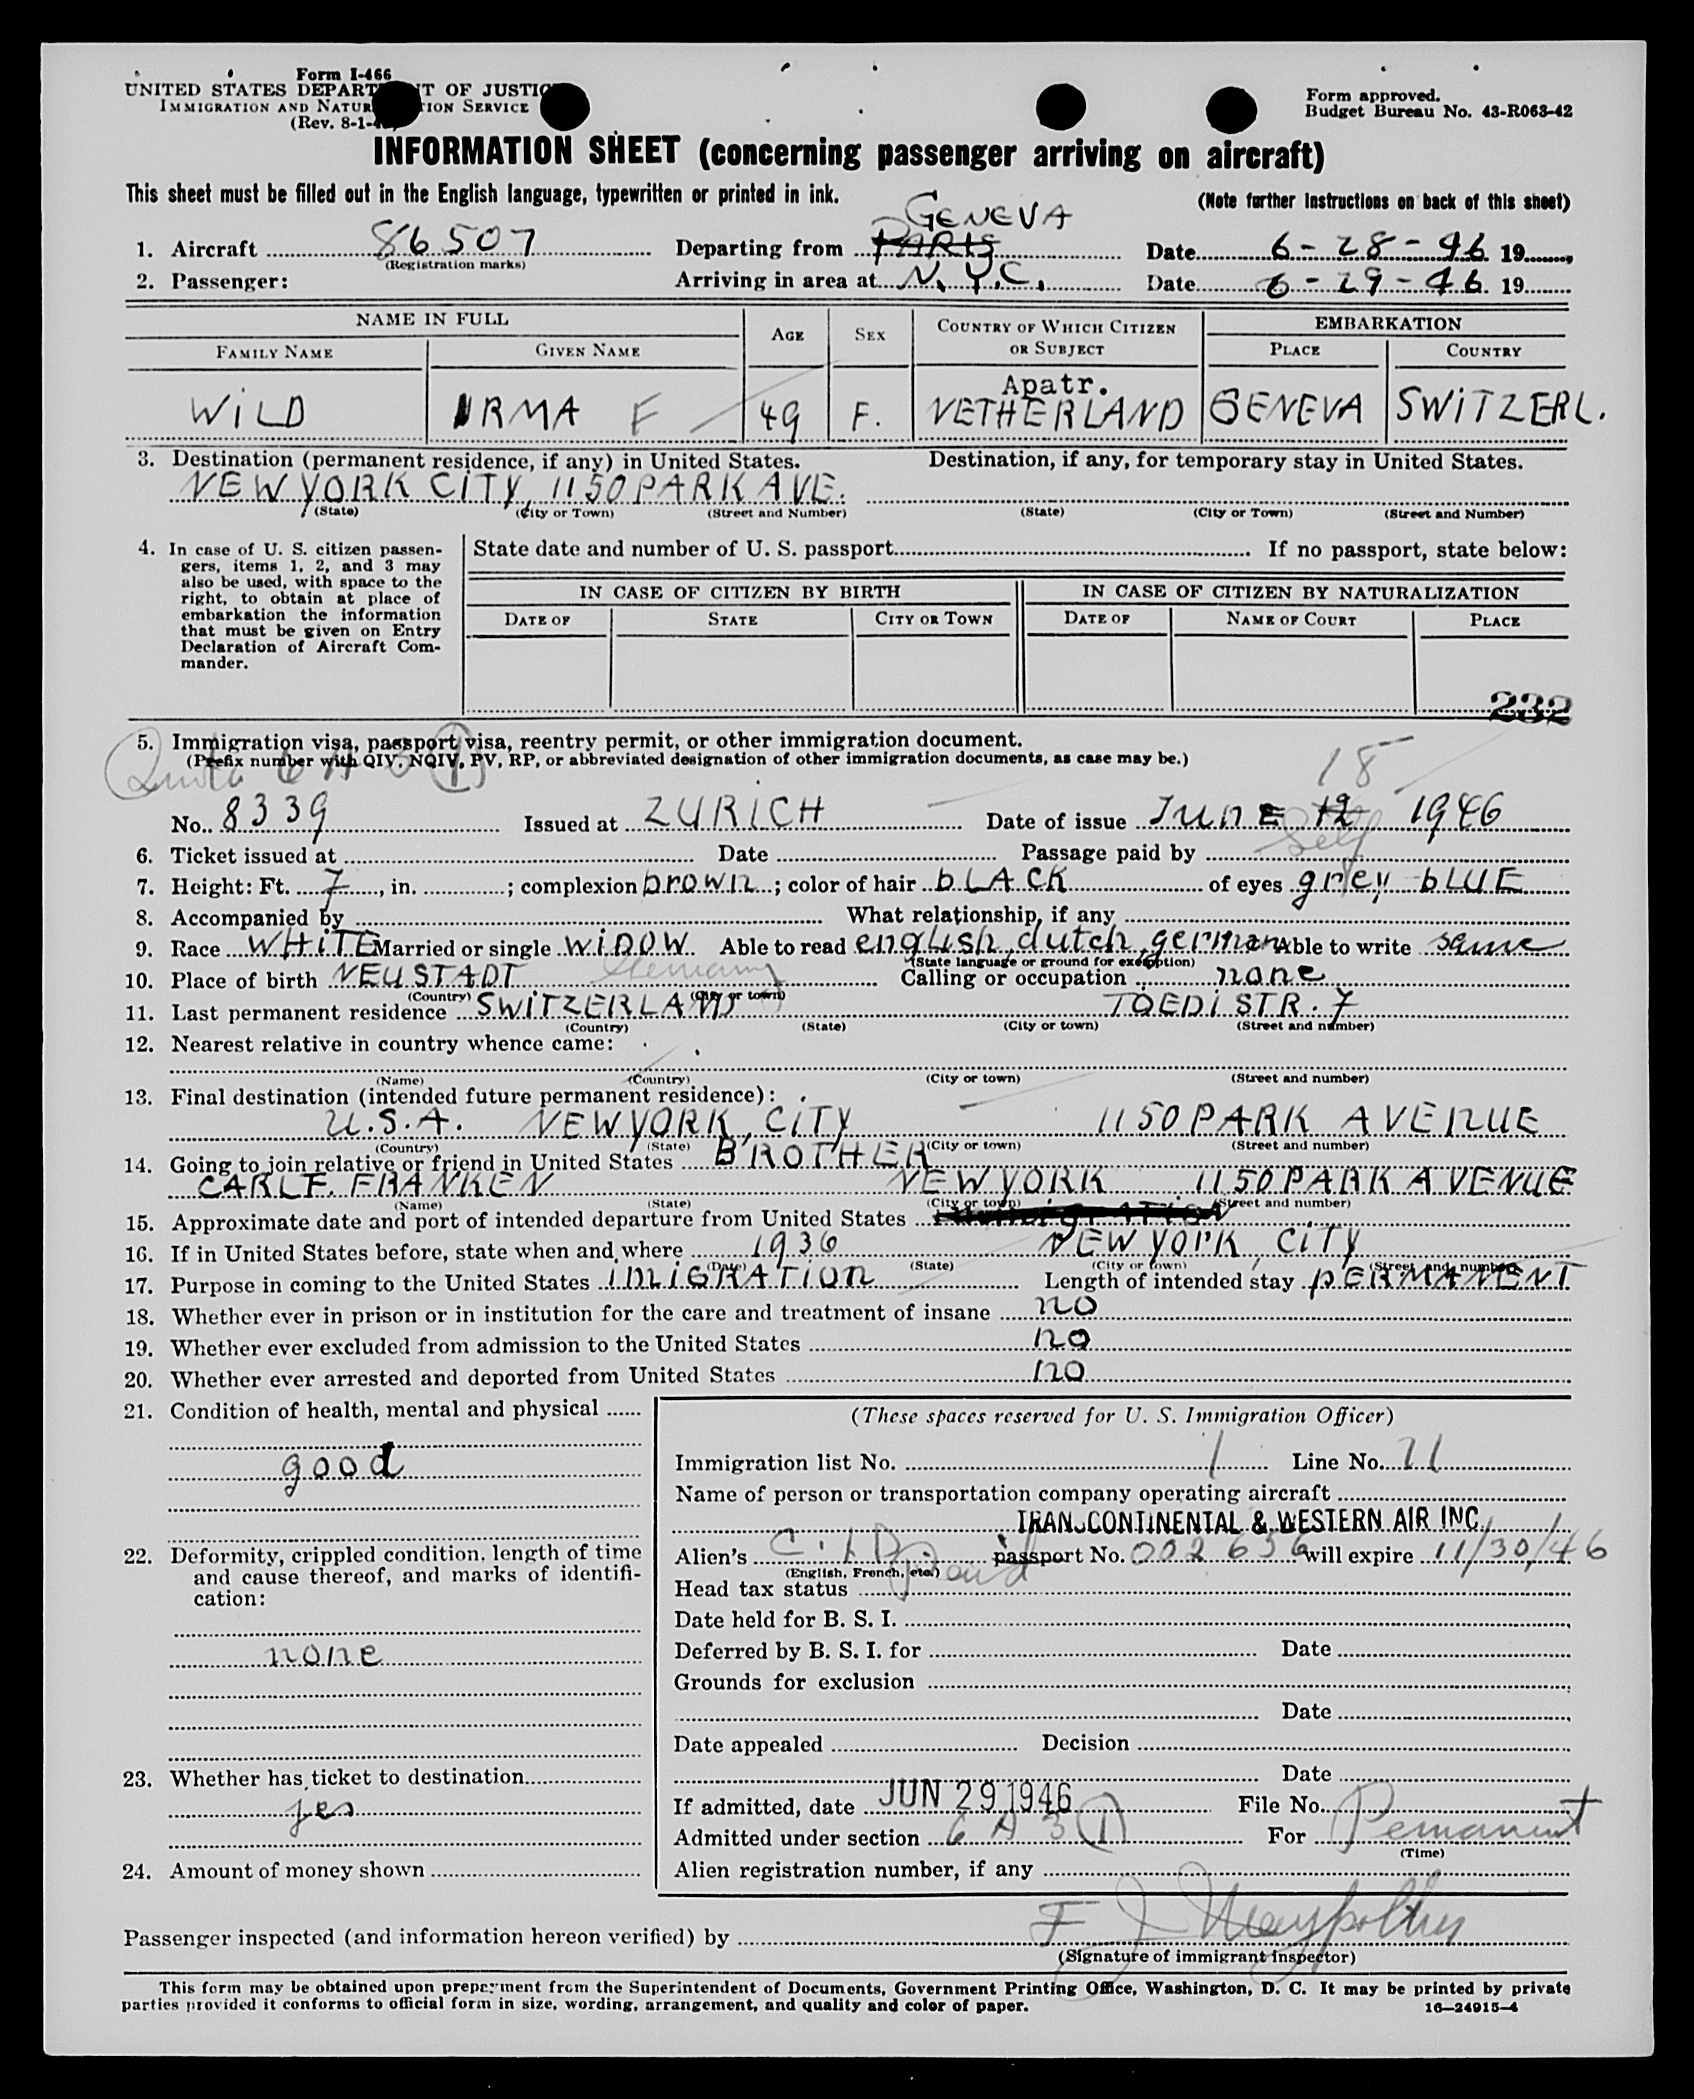 Form I-466
UNITED STATES DEPART T OF JUSTIC
IMMIGRATION AND NATUR TION SERVICE
(Rev. 8-1-
Form approved.
Budget Bureau No. 43-R063-42
INFORMATION SHEET (concerning passenger arriving on aircraft)
This sheet must be filled out in the English language, typewritten or printed in ink.
(Note further instructions on back of this sheet)
GENEVA
1. Aircraft 86507 Departing from PARIS Date 6-28-46 19
(Registration marks)
2. Passenger: Arriving in area at N.Y.C. Date 6-29-46 19
NAME IN FULL AGE SEX COUNTRY OF WHICH CITIZEN OR SUBJECT EMBARKATION
FAMILY NAME GIVEN NAME PLACE COUNTRY
Apatr.
WILD IRMA F 49 F. NETHERLAND GENEVA SWITZERL.
3. Destination (permanent residence, if any) in United States. Destination, if any, for temporary stay in United States.
NEW YORK CITY, 1150 PARK AVE.
(State) (City or Town) (Street and Number) (State) (City or Town) (Street and Number)
4. In case of U. S. citizen passen-
gers, items 1, 2, and 3 may
also be used, with space to the
right, to obtain at place of
embarkation the information
that must be given on Entry
Declaration of Aircraft Com-
mander.
State date and number of U. S. passport If no passport, state below:
IN CASE OF CITIZEN BY BIRTH IN CASE OF CITIZEN BY NATURALIZATION
DATE OF STATE CITY OR TOWN DATE OF NAME OF COURT PLACE
232
5. Immigration visa, passport visa, reentry permit, or other immigration document.
(Prefix number with QIV, NQIV, PV, RP, or abbreviated designation of other immigration documents, as case may be.)
Quota 6 A 3 (1)
18
No. 8339 Issued at ZURICH Date of issue JUNE 12 1946
6. Ticket issued at Date Passage paid by Self
7. Height: Ft. 7, in. ; complexion brown; color of hair bLACK of eyes grey bLUE
8. Accompanied by What relationship, if any
9. Race WHITE Married or single WIDOW. Able to read english, dutch, german Able to write same
(State language or ground for exemption)
10. Place of birth NEUSTADT Germany Calling or occupation none
(Country) (City or town)
11. Last permanent residence SWITZERLAND TOEDISTR. 7
(Country) (State) (City or town) (Street and number)
12. Nearest relative in country whence came:
(Name) (Country) (City or town) (Street and number)
13. Final destination (intended future permanent residence):
U.S.A. NEW YORK, CITY 1150 PARK AVENUE
(Country) (State) (City or town) (Street and number)
14. Going to join relative or friend in United States BROTHER
CARL F. FRANKEN NEW YORK 1150 PARK AVENUE
(Name) (State) (City or town) (Street and number)
15. Approximate date and port of intended departure from United States
16. If in United States before, state when and where 1936 NEW YORK, CITY
(Date) (State) (City or town) (Street and number)
17. Purpose in coming to the United States IMIGRATION Length of intended stay PERMANENT
18. Whether ever in prison or in institution for the care and treatment of insane no
19. Whether ever excluded from admission to the United States no
20. Whether ever arrested and deported from United States no
21. Condition of health, mental and physical
good
22. Deformity, crippled condition, length of time
and cause thereof, and marks of identifi-
cation:
none
23. Whether has ticket to destination
yes
24. Amount of money shown
(These spaces reserved for U. S. Immigration Officer)
Immigration list No. 1 Line No. 21
Name of person or transportation company operating aircraft
TRANSCONTINENTAL & WESTERN AIR INC.
Alien's passport No. 002656 will expire 11/30/46
(English, French, etc.)
Head tax status
Date held for B. S. I.
Deferred by B. S. I. for Date
Grounds for exclusion
Date
Date appealed Decision
Date
If admitted, date JUN 29 1946 File No.
Admitted under section 6 A 3 (1) For Permanent
(Time)
Alien registration number, if any
Passenger inspected (and information hereon verified) by F J
(Signature of immigrant inspector)
This form may be obtained upon prepayment from the Superintendent of Documents, Government Printing Office, Washington, D. C. It may be printed by private
parties provided it conforms to official form in size, wording, arrangement, and quality and color of paper.
16—24915-4